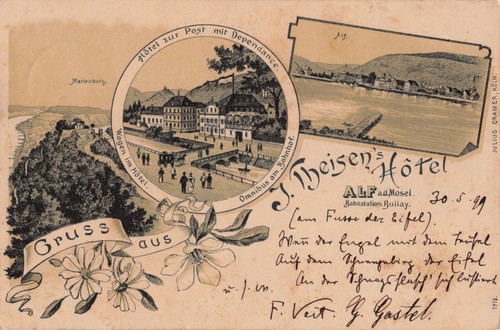 Hôtel zur Post mit Dependance
Wagen im Hôtel.
Omnibus am Bahnhof.
Marienburg.
Alf.
JULIUS CRAMER, KÖLN.
J. Theisen's Hôtel
ALF a.d. Mosel.
Bahnstation: Bullay.
Gruss aus
30.5.99
(am Fusse der Eifel)
Wenn der Engel mit dem Teufel
Auf dem der Eifel
An der sich
u. s. w.
F. Veit. G. Gastel.